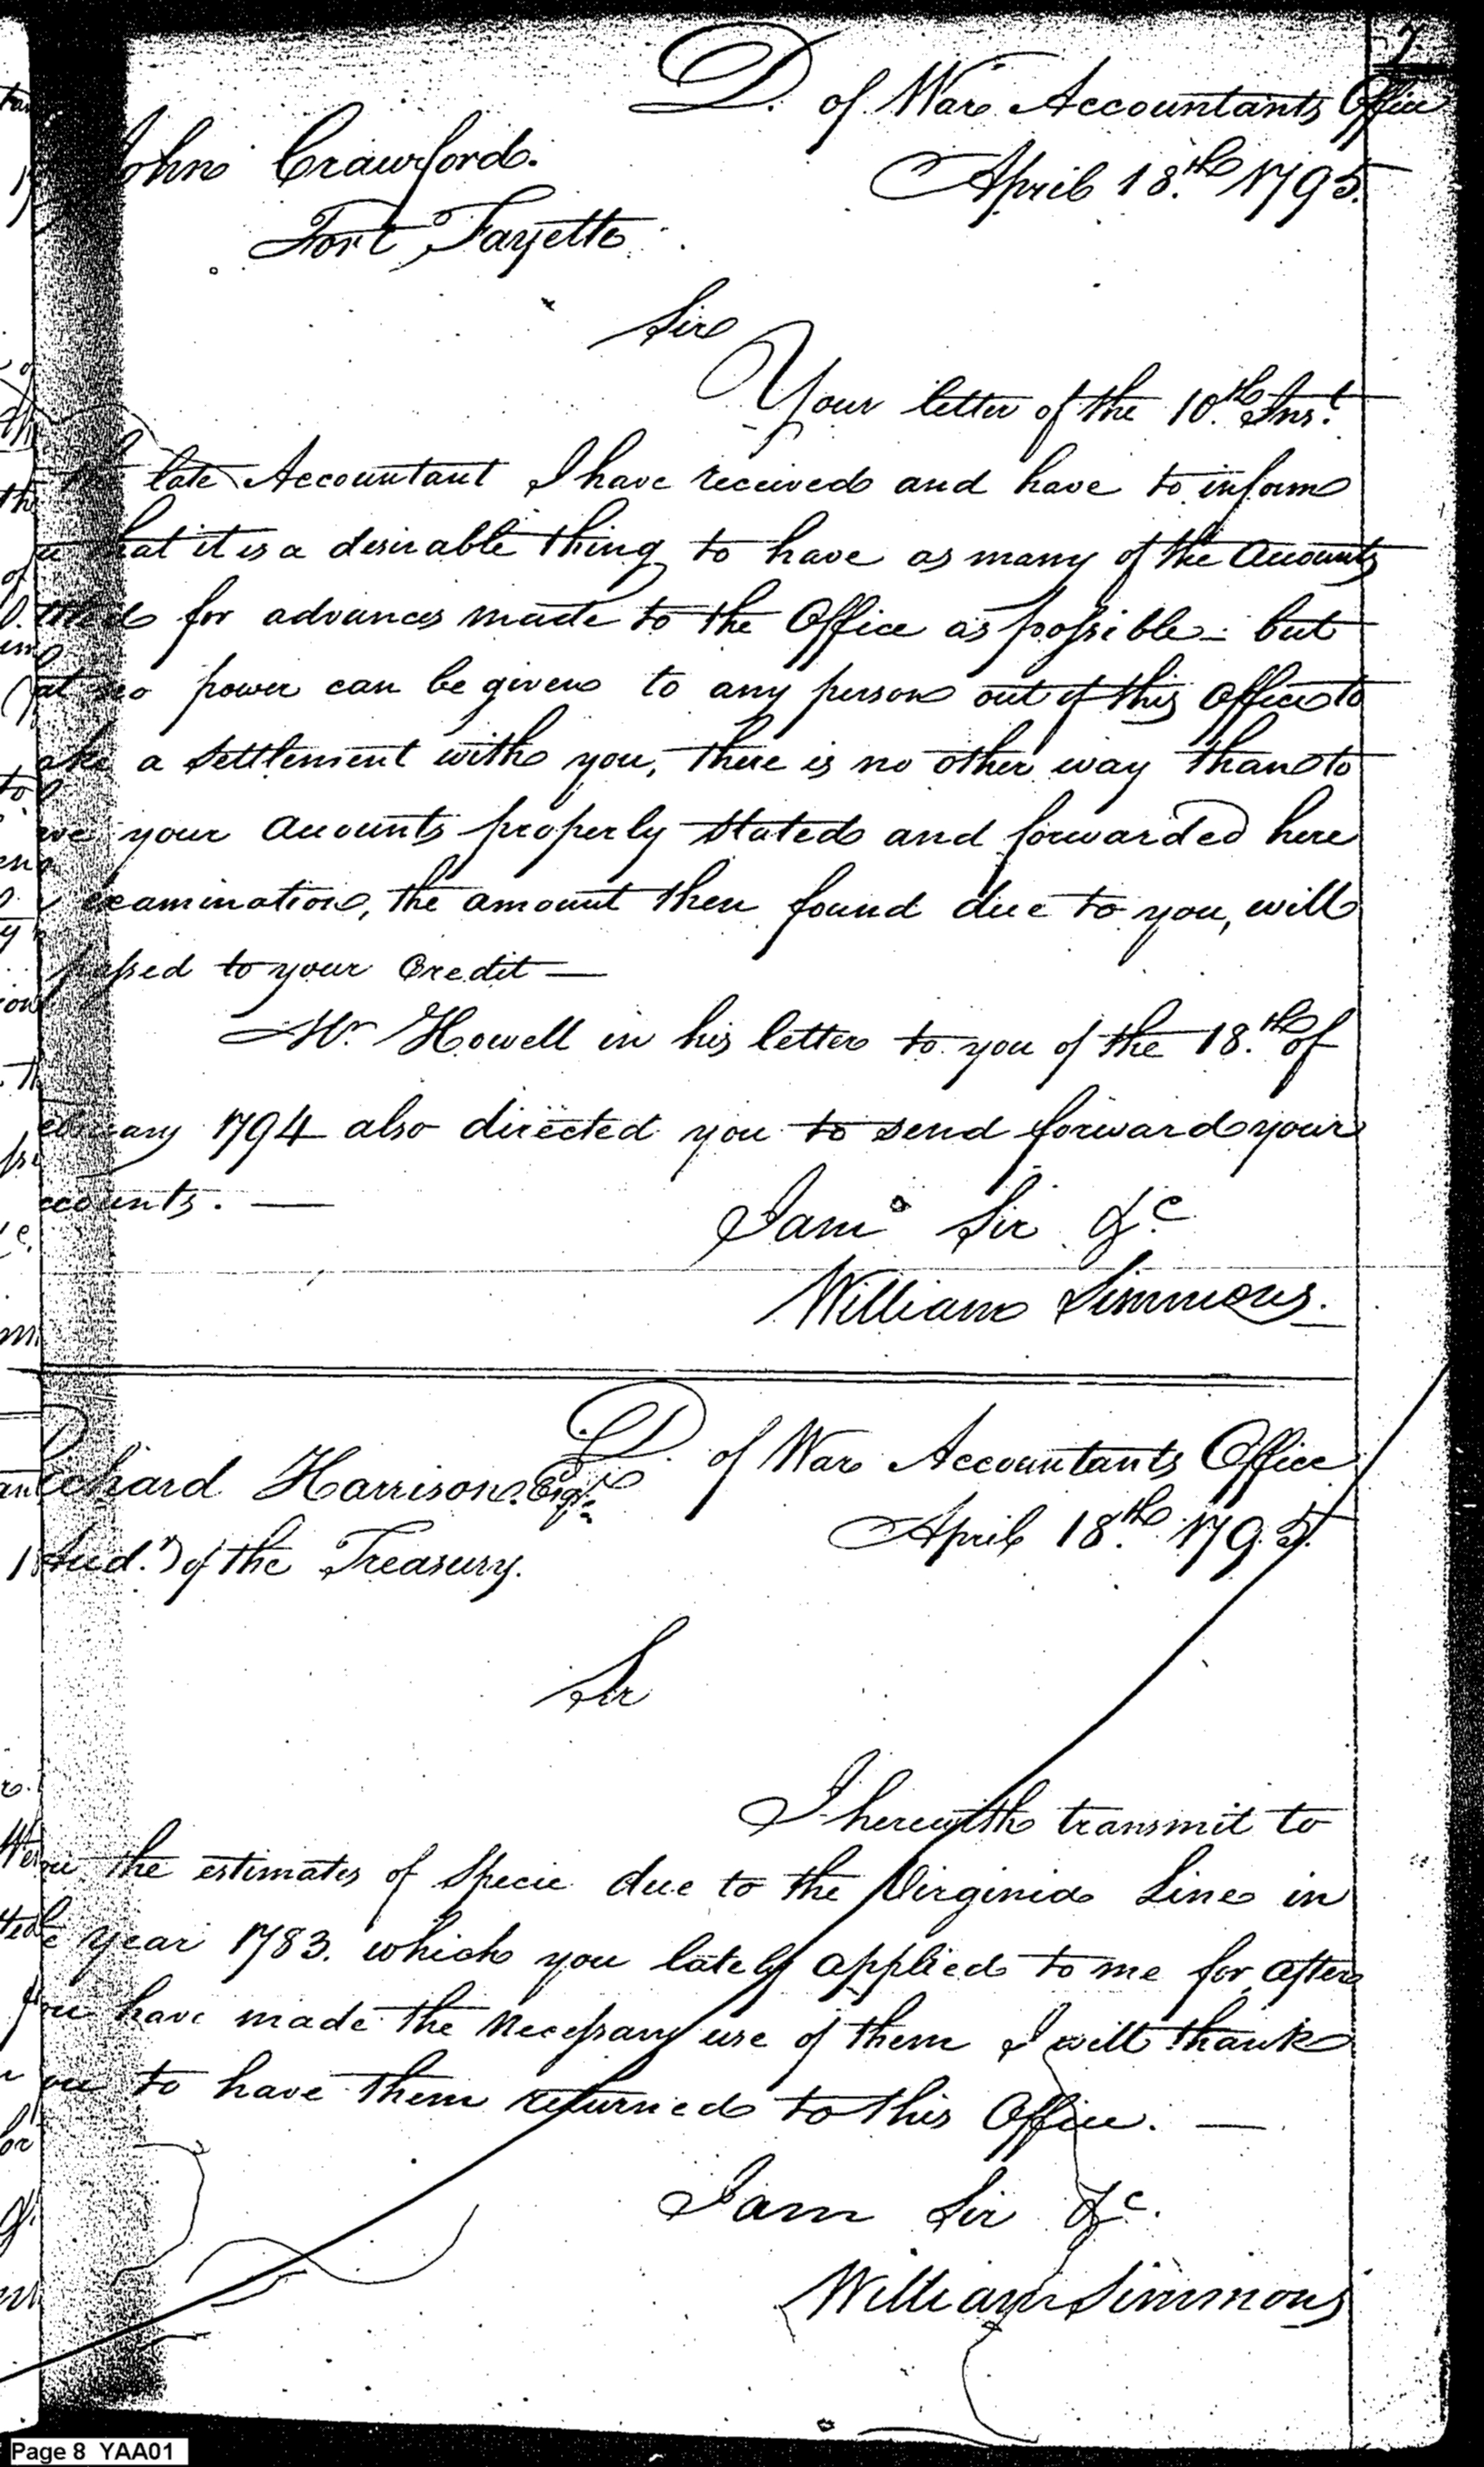 7
D. of War Accountants Office
John Crawford.
April 18.th 1795.
Fort Fayette
Sir
Your letter of the 10.th Ins.t
late Accountant I have received and have to inform
that it is a desirable thing to have as many of the Accounts
for advances made to the Office as possible – but
no power can be given to any person out of this Office to
a settlement with you, there is no other way than to
your Accounts properly stated and forwarded here
examination, the amount then found due to you, will
passed to your Credit —
Mr. Howell in his letter to you of the 18.th of
February 1794 also directed you to send forward your
ccounts. —
I am Sir &c
William Simmons.
D. of War Accountants Office
Richard Harrison Esqr.
April 18.th 1795.
Aud.r of the Treasury.
Sir
I herewith transmit to
you the estimates of Specie due to the Virginia Line in
e year 1783. which you lately applied to me for, after
you have made the necessary use of them I will thank
you to have them returned to this Office. —
I am Sir &c.
William Simmons
Page 8 YAA01